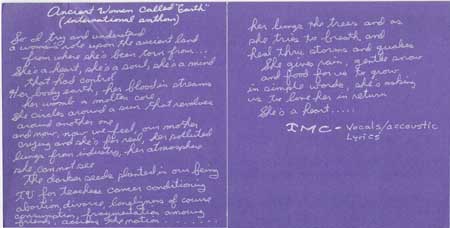 Ancient Woman Called "Earth"
(international anthem)
So I try and understand
a woman's role upon the ancient land
from where she's been torn from...
She's a heart, she's a soul, she's a mind
that had control
Her body earth, her blood in streams
her womb a molten core
She circles around a sun that revolves
around another one
and now, now we feel, our mother
crying and she's for real, her polluted
lungs from industry, her atmosphere
she cannot see
The darker seeds planted in our being
TV for teachers cancer conditioning
abortion, divorce, loneliness of course
consumption, fragmentation among
friends, across the nation........
her lungs the trees and as
she tries to breath and
heal thru storms and quakes
She gives rain, gentle snow
and food for us to grow
in simple words, she's asking
us to love her in return
She's a heart.....
IMC - Vocals/accoustic
Lyrics